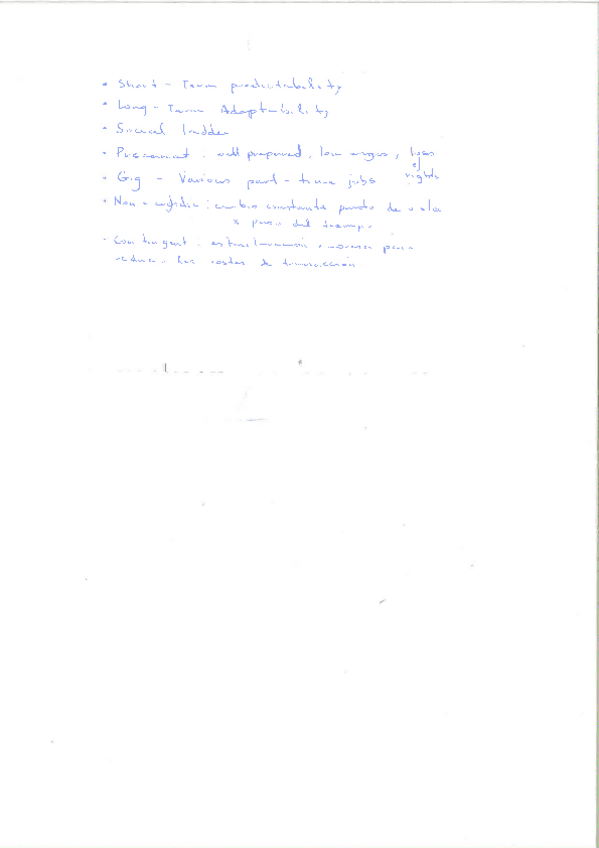 • Short - Term predictability
• Long - Term Adaptability
• Social ladder
• Precariat : well prepared, low wages, loss of rights
• Gig - Various part - time jobs
• Non - : cambio constante punto de vista
x paso del tiempo
• Contingent : para
reducir los costes de transacción